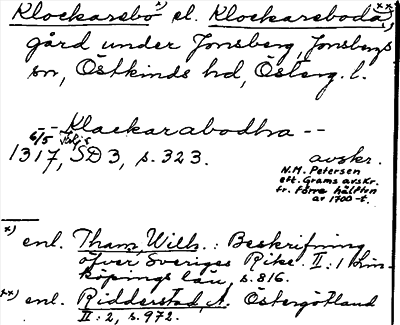 Klockarebo *) el. Klockareboda **),
gård under Jonsberg, Jonsbergs
sn, Östkinds hd, Österg. l.
-- Klackarabodhra --
6/5
1317, SD 3, s. 323.
avskr.
N.M. Petersen
eft. Grams avskr.
fr. förra hälften
av 1700-t.
*) enl. Tham, Wilh.: Beskrifning
öfver Sveriges Rike. II: 1 Lin-
köpings län, s. 816.
**) enl. Ridderstad, A. Östergötland
II: 2, s. 972.